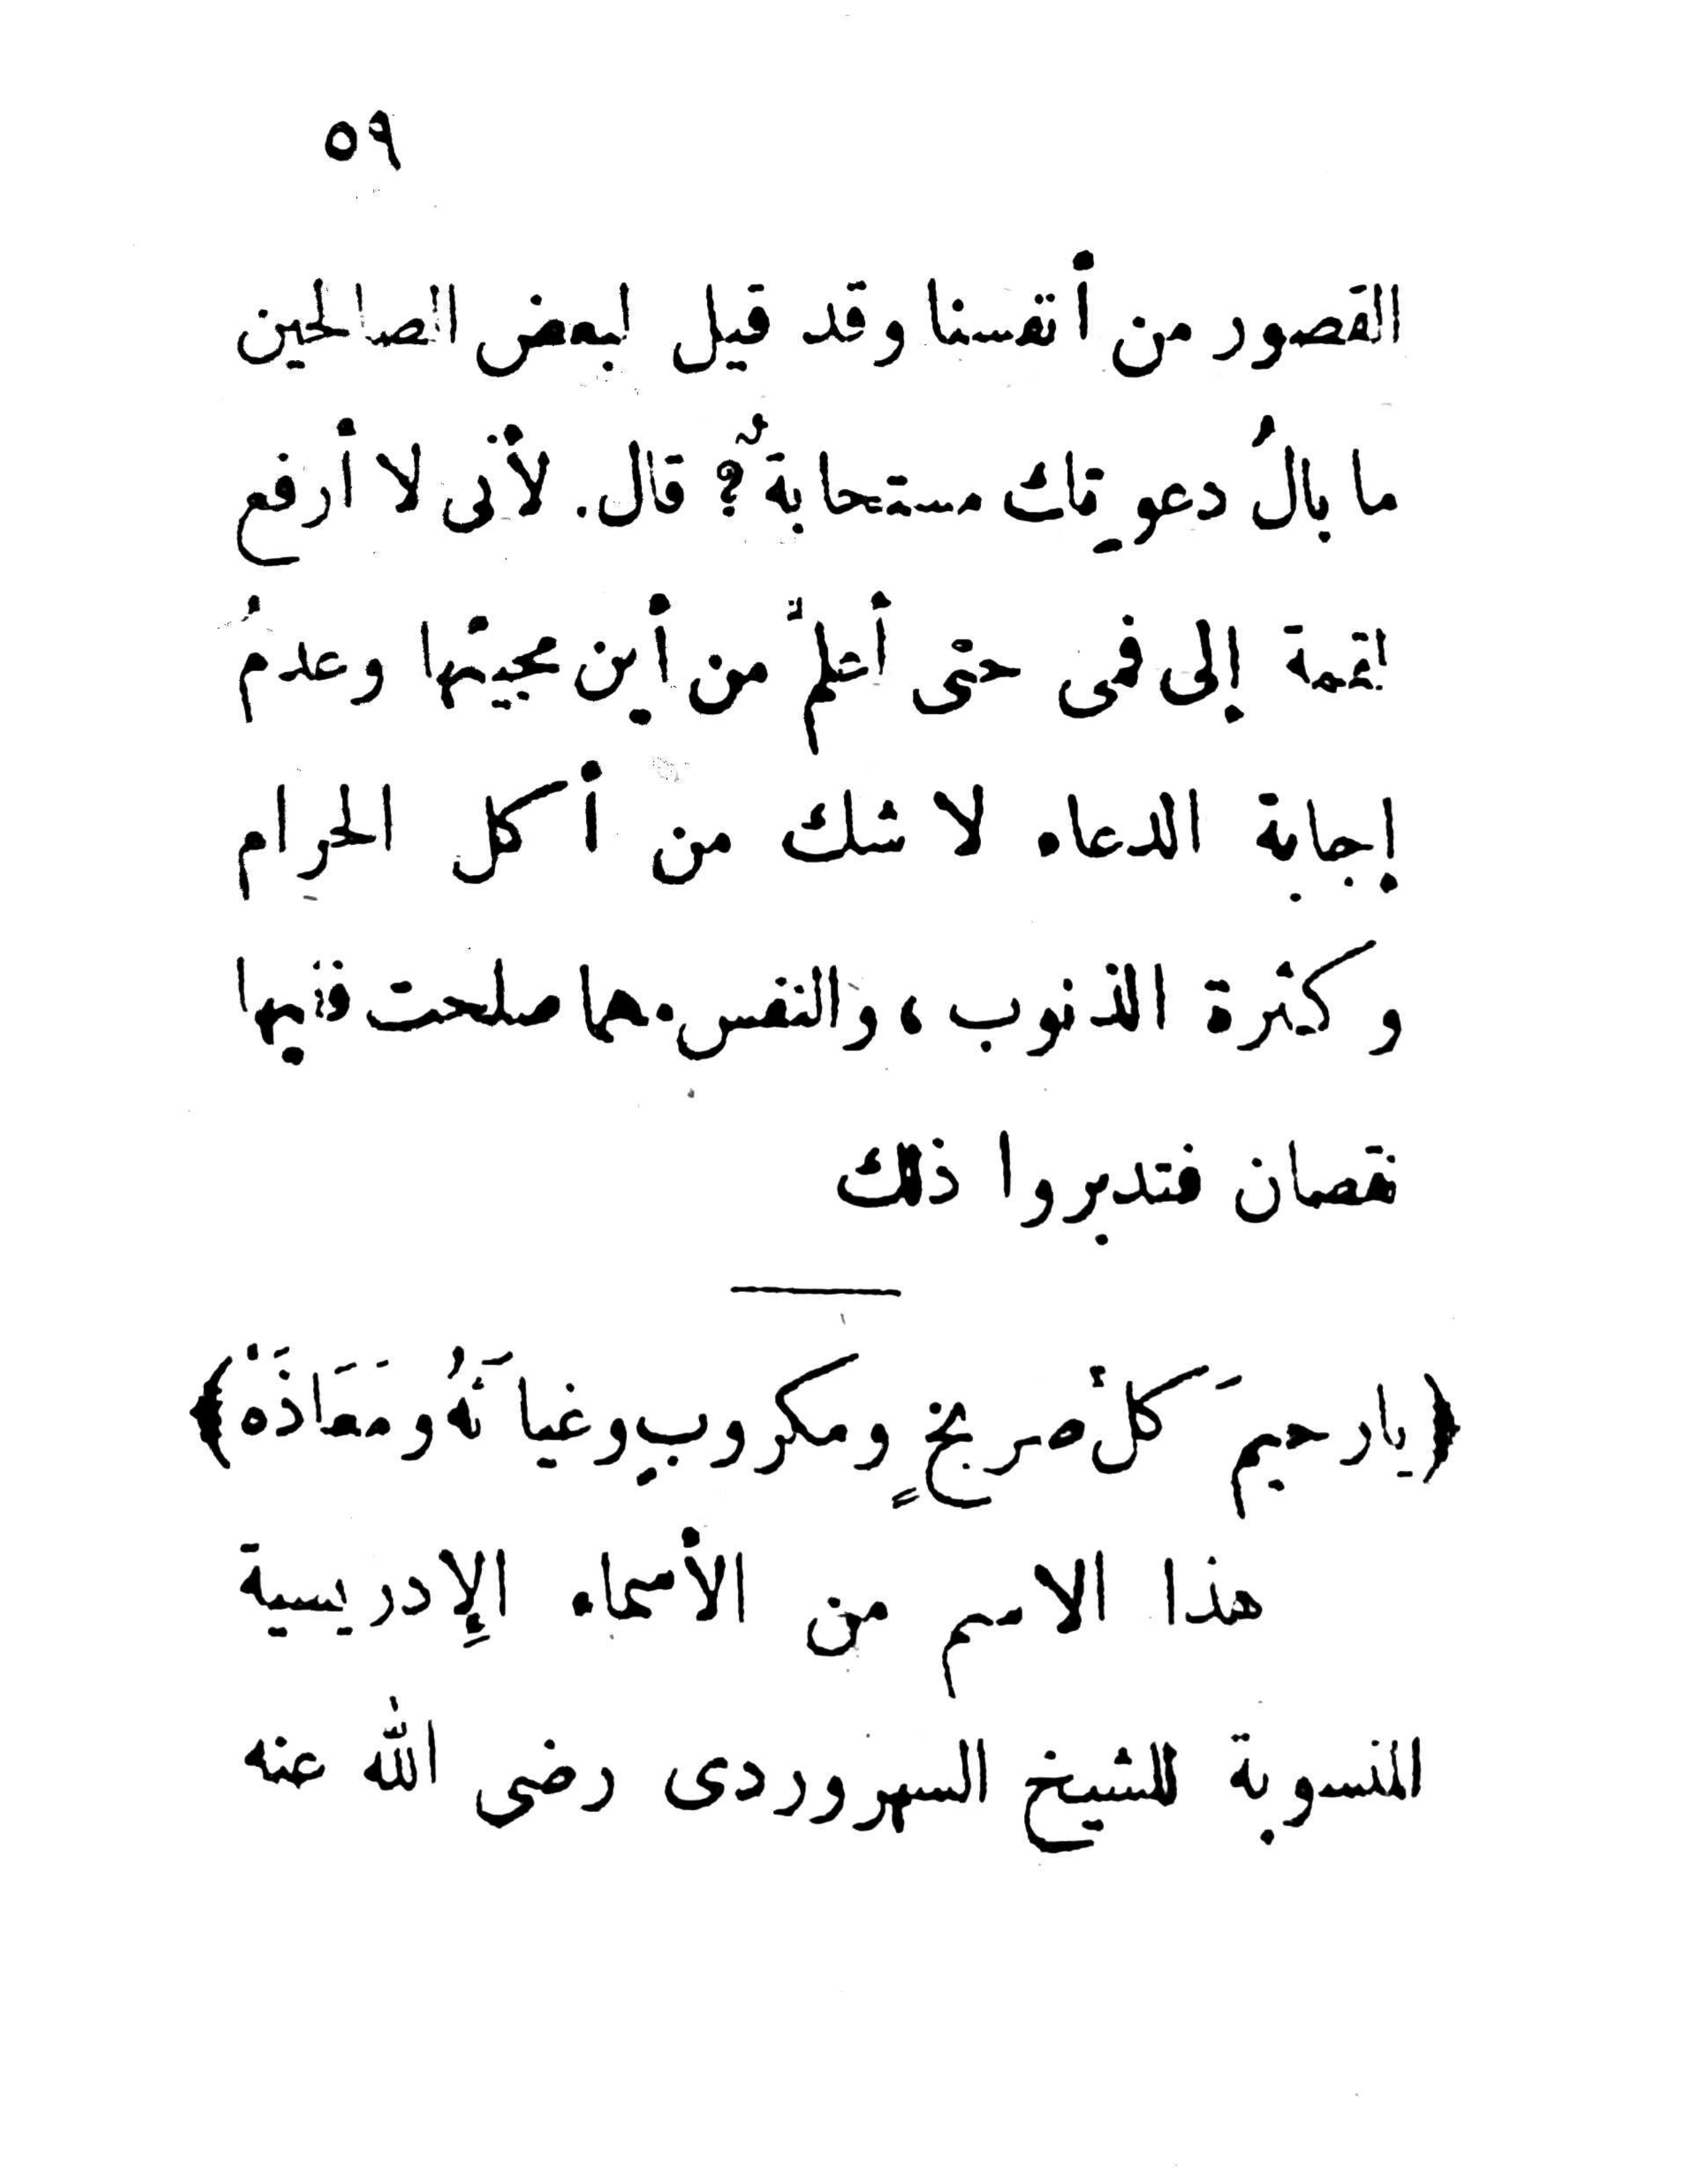 ٥٩
القصور من أنفسنا وقد قيل لبعض الصالحين
ما بالُ دعوتك مستجابةٌ؟ قال. لأنى لا أرفع
لقمة إلى فمى حتى أعلمَ من أين مجيئها وعدمُ
إجابة الدعاء لا شك من أكل الحرام
وكثرة الذنوب، والنفس مهما صلحت ففيها
نقصان فتدبروا ذلك
﴿يارحيمَ كلِّ صريخٍ ومكروبٍ وغياثَهُ ومَعَاذَهْ﴾
هذا الاسم من الأسماء الإدريسية
المنسوبة للشيخ السهروردى رضى الله عنه